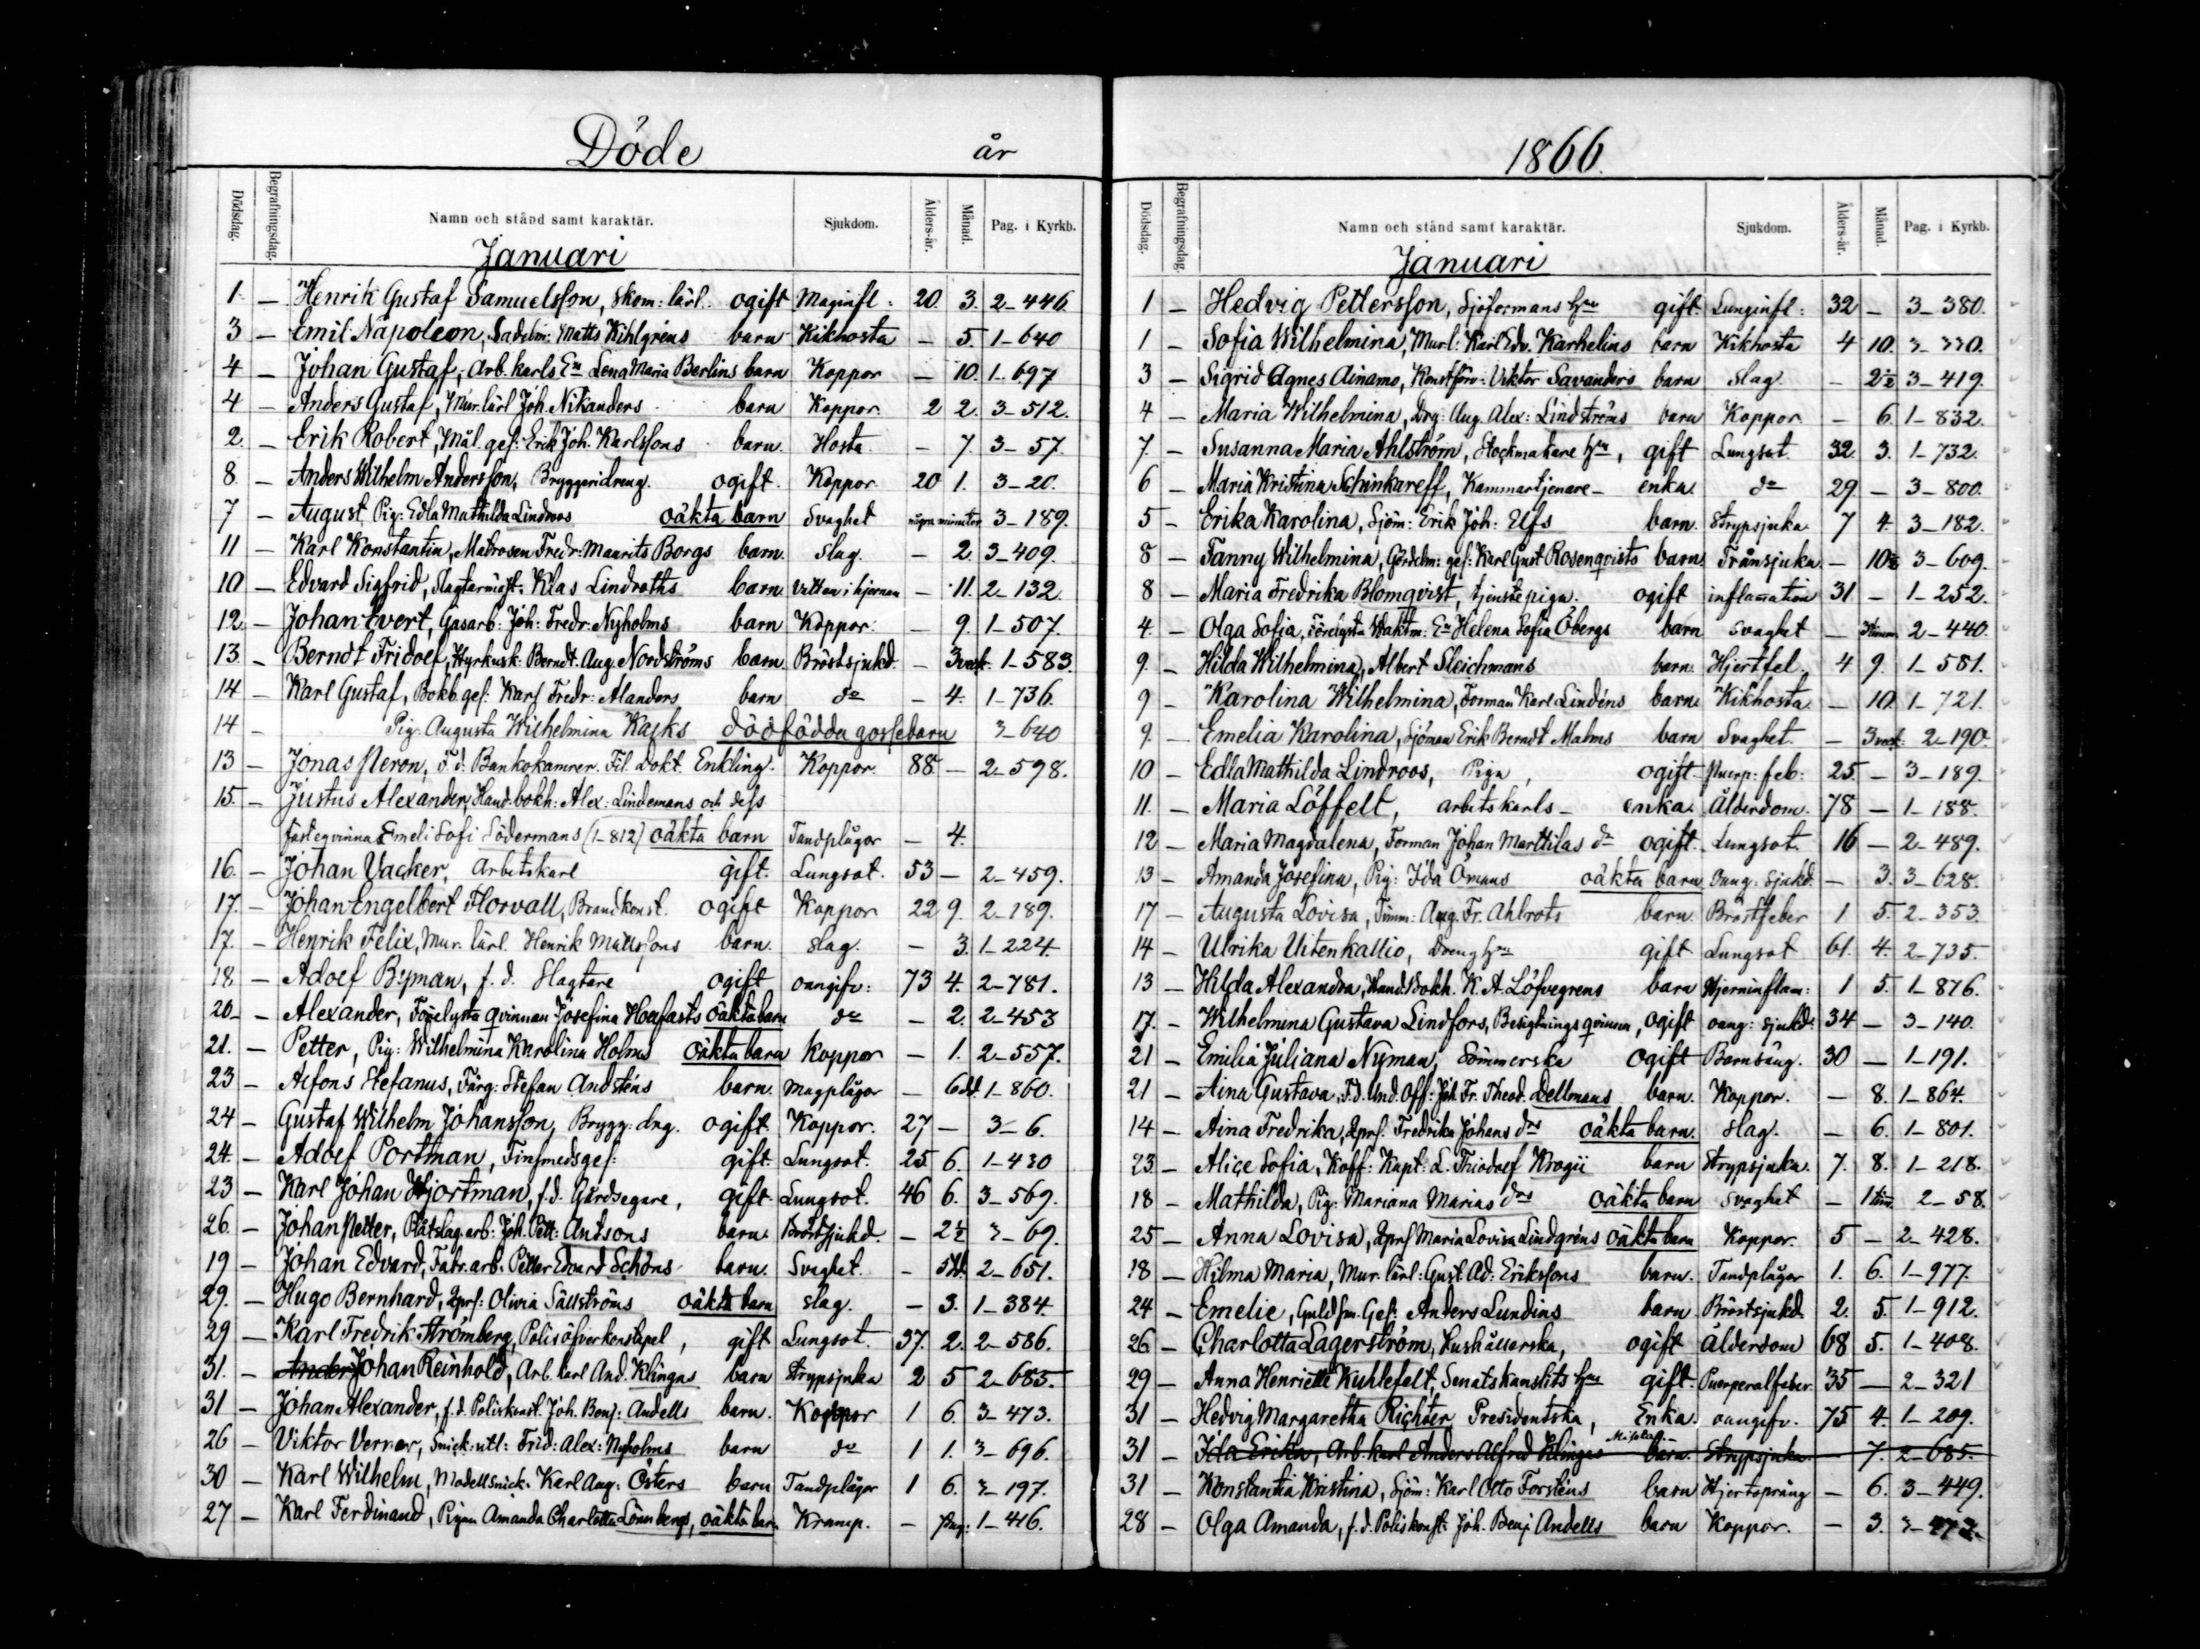 Döde år
Dödsdag. Begrafningsdag. Namn och stånd samt karaktär. Sjukdom. Ålders-år. Månad. Pag. i Kyrkb.
Januari
1. — Henrik Gustaf Samuelsson, Skom: lärl. ogift Maginfl: 20. 3. 2–446
3 — Emil Napoleon, Sadelm: Matts Kihlgréns barn Kikhosta — 5. 1–640
4 — Johan Gustaf, Arb. karls En Lena Maria Berlins barn Koppor — 10. 1–697
4 — Anders Gustaf, Mur. lärl Joh. Nikanders barn Koppor 2 2. 3–512.
2. — Erik Robert, Mål. ges: Erik Joh. Karlssons barn. Hosta — 7. 3–57.
8. — Anders Wilhelm Andersson, Bryggeridreng. ogift. Koppor 20 1. 3–20.
7 — August, Pig: Edla Mathilda Lindroos oäkta barn Svaghet några minuter 3–189.
11 — Karl Konstantin, Matrosen Fredr: Maurits Borgs barn. Slag. — 2. 3–409.
10 — Edvard Sigfrid, Slagtarmäst: Klas Lindroths barn. Vatten i hjernan — 11. 2–132.
12 — Johan Evert, Gasarb: Joh: Fredr: Nyholms barn Koppor. — 9. 1–507.
13. — Berndt Fridolf, Hyrkusk: Berndt Aug. Nordströms barn Bröstsjukd. — 3 veck: 1–583.
14 — Karl Gustaf, Bokb. ges: Karl Fredr: Alanders barn do — 4. 1–736.
14 — Pig: Augusta Wilhelmina Kasks dödfödda gossebarn 3–640
13 — Jonas Neron, F. d. Bankokamrer. Fil. Dokt. Enkling. Koppor 88 — 2–598.
15. — Justus Alexander, Hand. bokh: Alex: Lindemans och dess
fästeqvinna Emeli Sofi Södermans (1–812) oäkta barn Tandplågor — 4.
16. — Johan Vacker, Arbetskarl gift. Lungsot. 53 — 2–459.
17. — Johan Engelbert Florvall, Brandkonst. ogift Koppor 22 9. 2–189.
17. — Henrik Felix, Mur. lärl. Henrik Mattssons barn. Slag. — 3. 1–224.
18 — Adolf Byman, f. d. Slagtare ogift oangifv: 73 4. 2–781.
20. — Alexander, Förelysta qvinnan Josefina Hoffasts oäkta barn do — 2. 2–453
21. — Petter, Pig: Wilhelmina Karolina Holms oäkta barn Koppor — 1. 2–557.
23 — Alfons Stefanus, Färg: Stefan Andsténs barn. Magplågor — 6 dd. 1–860.
24 — Gustaf Wilhelm Johansson, Brygg: dng. ogift Koppor. 27 — 3–6.
24. — Adolf Portman, Finsmedsges: gift Lungsot. 25 6. 1–430
23 — Karl Johan Hjortman, f. d. Gårdsegare, gift Lungsot. 46 6. 3–569.
26. — Johan Petter, Plåtslag. arb: Joh. Pett: Antsons barn. Bröstsjukd. — 2½ 3–69.
19 — Johan Edvard, Fabr. arb. Petter Edvard Schöns barn. Svaghet. — 5 dd. 2–651.
29. — Hugo Bernhard, Qprs: Olivia Sällströms oäkta barn Slag. — 3. 1–384.
29 — Karl Fredrik Strömberg, Polisöfverkonstapel, gift Lungsot. 37. 2. 2–586.
31. — Ander Johan Reinhold, Arb. karl And. Klingas barn Strypsjuka 2 5 2–685.
31 — Johan Alexander, f. d. Poliskonst. Joh. Benj: Andells barn. Koppor 1 6. 3–473.
26 — Viktor Verner, Snick: utl: Frid: Alex: Nyholms barn do 1 1. 3–696.
30 — Karl Wilhelm, Modellsnick. Karl Aug: Östers barn Tandplågor 1 6. 3–197.
27 — Karl Ferdinand, Pigan Amanda Charlotta Lönnbergs, oäkta barn Kramp. — 1–416.
1866.
Dödsdag. Begrafningsdag. Namn och stånd samt karaktär. Sjukdom. Ålders-år. Månad. Pag. i Kyrkb.
Januari
1 — Hedvig Pettersson, Sjöformans hru gift Lunginfl: 32 — 3–380.
1 — Sofia Wilhelmina, Murl: Karl Edv. Karhelins barn Kikhosta 4 10. 3–330.
3 — Sigrid Agnes Ainamo, Konstförv: Viktor Savanders barn Slag. — 2½ 3–419.
4 — Maria Wilhelmina, Drg: Aug. Alex: Lindströms barn Koppor — 6. 1–832.
7. — Susanna Maria Ahlström, Stockmakare hru, gift Lungsot. 32 3. 1–732.
6 — Maria Kristina Schinkareff, Kammartjenare– enka. do 29. — 3–800.
5 — Erika Karolina, Sjöm: Erik Joh: Elfs barn. Strypsjuka 7 4. 3–182.
8 — Fanny Wilhelmina, Gördelm: ges: Karl Gust Rosenqvists barn Trånsjuka — 10½ 3–609.
8 — Maria Fredrika Blomqvist, tjenstepiga. ogift inflamation 31 — 1–252.
4. — Olga Sofia, Förelysta Waktm: En Helena Sofia Öbergs barn Svaghet — 2–440.
9. — Hilda Wilhelmina, Albert Sleichmans barn. Hjertfel. 4 9. 1–581.
9 — Karolina Wilhelmina, Forman Karl Lindéns barn Kikhosta — 10. 1–721.
9. — Emelia Karolina, Sjöman Erik Berndt Malms barn Svaghet. — 3 veck: 2–190.
10 — Edla Mathilda Lindroos, Piga, ogift Puerp: feb: 25. — 3–189.
11. — Maria Löffelt, arbetskarls– enka. Ålderdom. 78 — 1–188.
12 — Maria Magdalena, Forman Johan Marttilas dr ogift. Lungsot. 16 — 2–489.
13 — Amanda Josefina, Pig: Ida Ömans oäkta barn Oang: sjukd. — 3. 3–628.
17 — Augusta Lovisa, Timm: Aug. Fr. Ahlrots barn. Bröstfeber 1 5. 2–353.
14 — Ulrika Uitenkallio, Dreng hru gift Lungsot 61. 4. 2–735.
13 — Hilda Alexandra, Hand. Bokh. K. A. Löfvegrens barn Hjerninflam: 1 5. 1–876.
17. — Wilhelmina Gustava Lindfors, Besigtnings qvinna, ogift oang: sjukd: 34 — 3–140.
21 — Emilia Juliana Nyman, Sömmerska ogift Barnsäng. 30 — 1–191.
21 — Aina Gustava, F. d. Und. Off: Joh. Fr. Theod. Dellmans barn. Koppor. — 8. 1–864.
14 — Aina Fredrika, Qprs. Fredrika Johans drs oäkta barn. Slag. — 6. 1–801.
23 — Alice Sofia, Koff: Kapt: L. Thiodolf Krogii barn Strypsjuka. 7. 8. 1–218.
18 — Mathilda, Pig: Mariana Marias drs oäkta barn Svaghet — 1 tim. 2–58.
25 — Anna Lovisa, Qprs Maria Lovisa Lindgréns oäkta barn Koppor. 5 — 2–428.
18 — Hilma Maria, Mur. lärl: Gust. Ad: Erikssons barn. Tandplågor 1. 6. 1–977.
24 — Emelie, Guldsm. Ges: Anders Lundins barn Bröstsjukd 2. 5. 1–912.
26 — Charlotta Lagerström, Hushållerska, ogift Ålderdom 68 5. 1–408.
29 — Anna Henriette Kuhlefelt, Senatskanslits hru gift. Puerperalfeber. 35 — 2–321
31 — Hedvig Margaretha Richter Presidentska, Enka. oangifv. 75 4. 1–209.
31 — Ida Erika, Arb. karl Anders Alfred Klingas barn. Strypsjuka 7. 2–685.
31 — Konstantia Kristina, Sjöm: Karl Otto Forsténs barn Hjertspräng — 6. 3–449.
28 — Olga Amanda, f. d. Poliskonst: Joh. Benj Andells barn Koppor. — 3. 3–473.